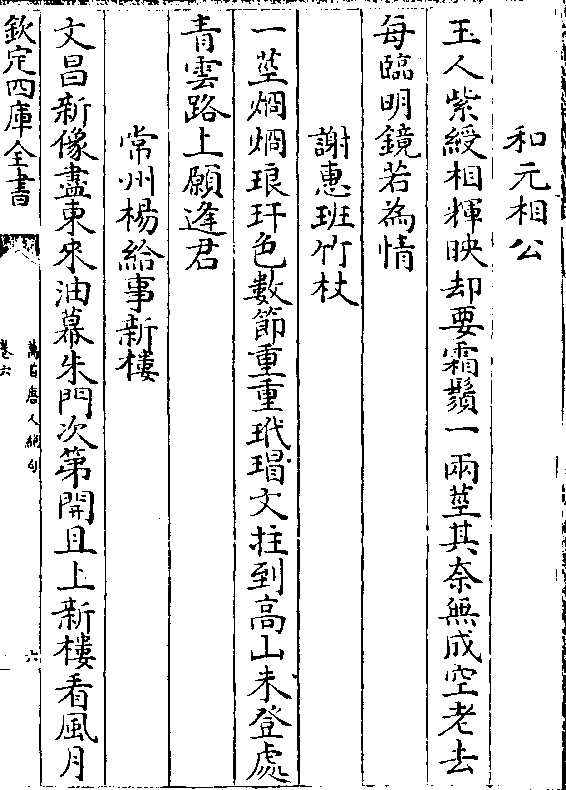 和元相公
玉人紫綬相輝映却要霜鬚一兩莖其奈無成空老去
每臨明鏡若為情
謝惠班竹杖
一莖烱烱琅玕色數節重重玳瑁文拄到高山未登處
青雲路上願逢君
常州楊給事新樓
文昌新像盡東來油幕朱門次第開且上新樓看風月
欽定四庫全書
萬首唐人絶句
卷六
六